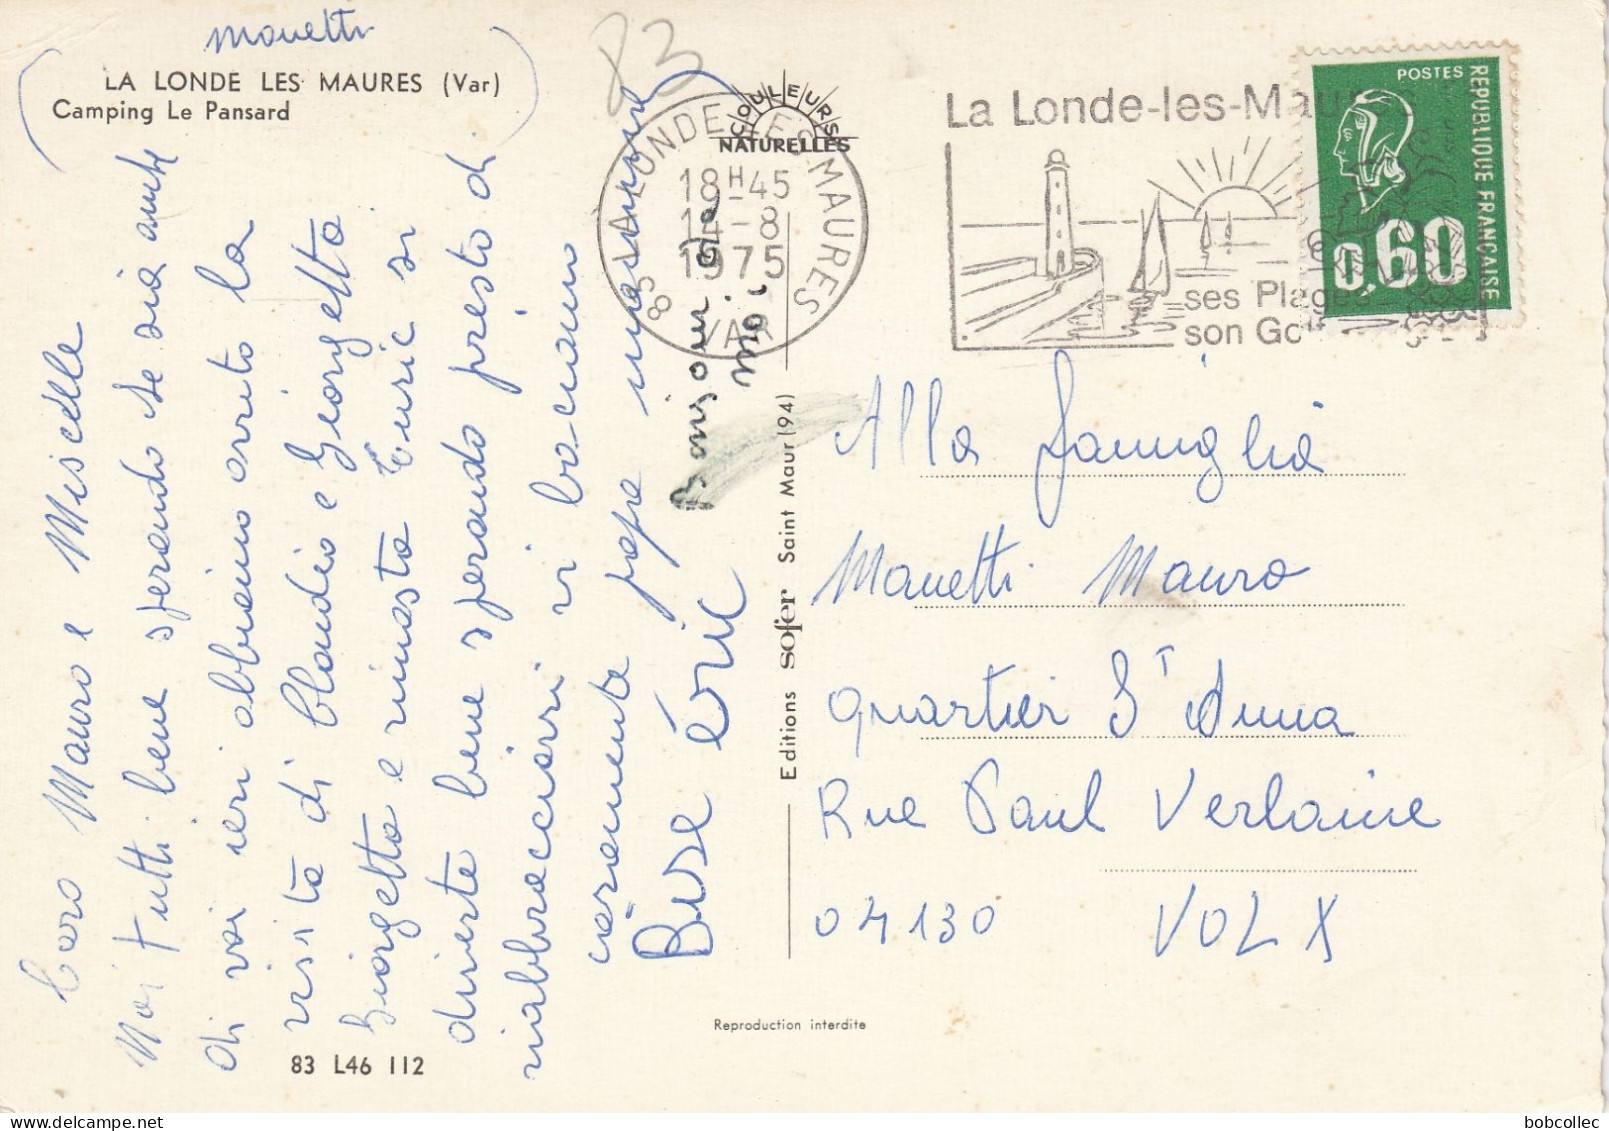 Manetti
LA LONDE LES MAURES (Var)
Camping Le Pansard
83
COULEURS
NATURELLES
83 LA LONDE-LES-MAURES
18H45
14-8
1975
VAR
La Londe-les-Maures
ses Plages
son Golf
POSTES
REPUBLIQUE FRANÇAISE
0,60
Caro Mauro e Miscelle
Noi tutti bene sperando che sia anche
di voi ieri abbiamo avuto la
visita di Claudio e Giorgetta
Giorgetta e rimasta Euric si
divierte bene sperando presto di
riabbracciarvi vi baciamo
caramente papa maman
Bise éric
Bonjour
moi
Editions sofer Saint Maur (94)
Alla famiglia
Manetti Mauro
quartier St Anna
Rue Paul Verlaine
04130 VOLX
Reproduction interdite
83 L46 112
bobcollec